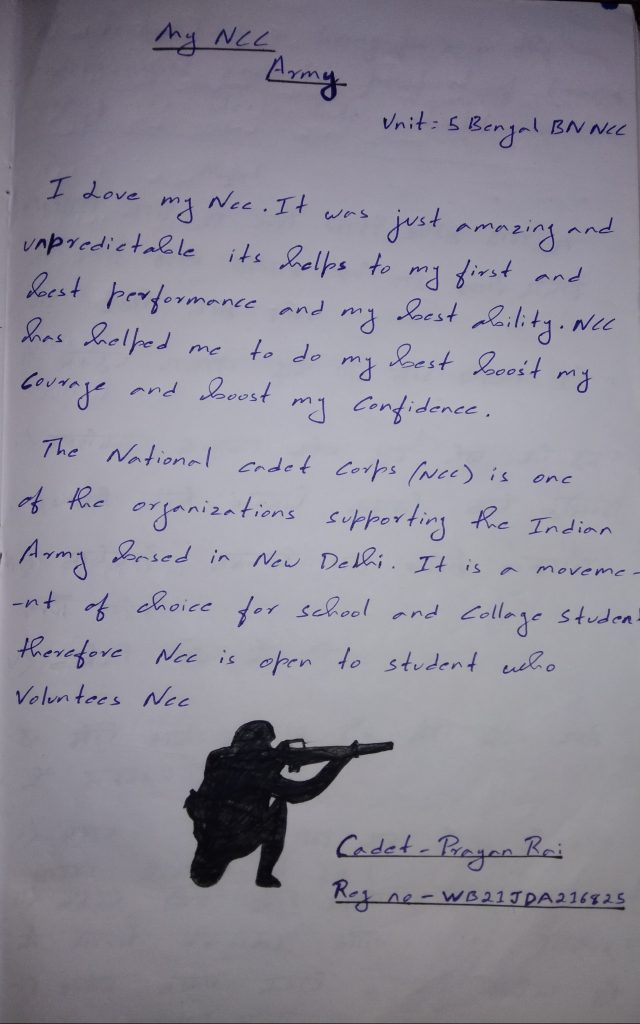 My NCC
Army
Unit: 5 Bengal BN NCC
I Love my Ncc. It was just amazing and
unpredictable its helps to my first and
best performance and my best ability. NCC
has helped me to do my best boost my
Courage and boost my Confidence.
The National cadet Corps (Ncc) is one
of the organizations supporting the Indian
Army based in New Delhi. It is a moveme-
-nt of choice for school and Collage studen
therefore Ncc is open to student who
Voluntees Ncc
Cadet - Prayan Rai
Reg no - WB21JDA216825